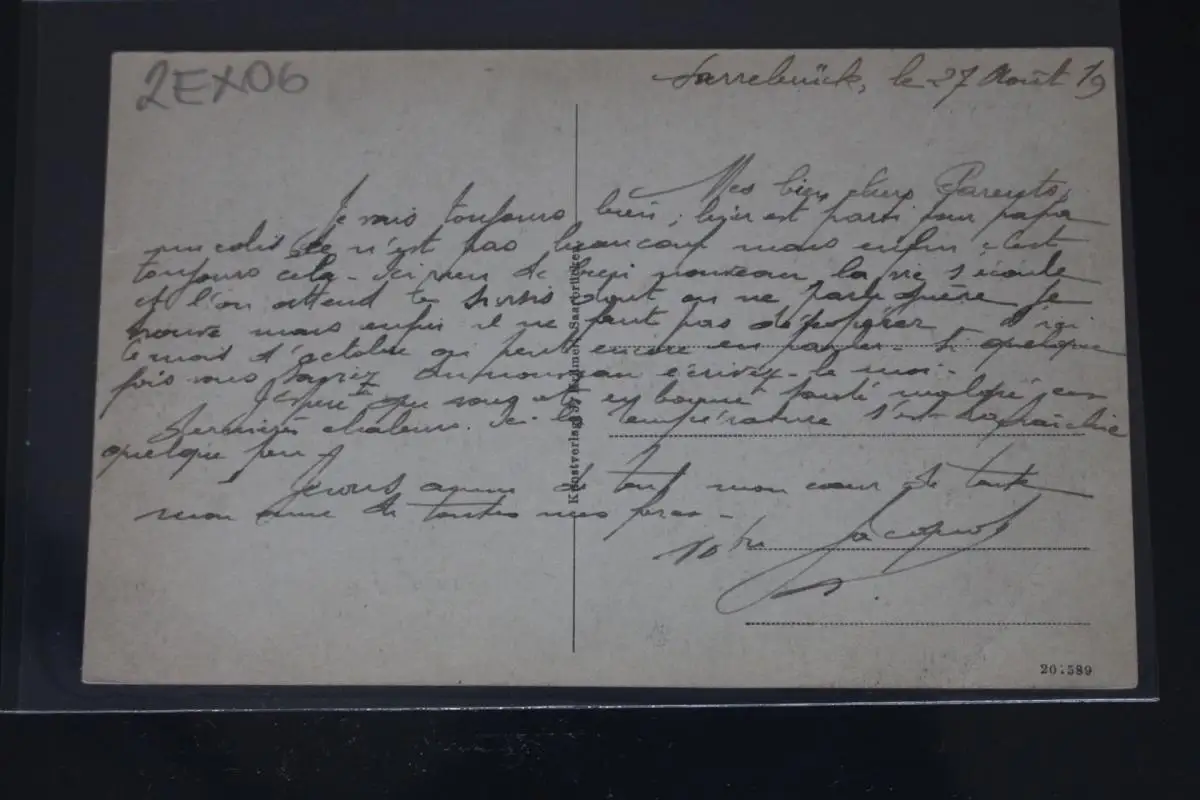 2EX06
Sarrebrück, le 27 Août 19
Mes bien chers Parents,
Je vais toujours bien, hier est parti pour papa
un colis ce n'est pas beaucoup mais enfin c'est
toujours cela - Ici rien de bien nouveau la vie s'écoule
et l'on attend le sursis dont on ne parle guère je
trouve mais enfin il ne faut pas désespérer - D'ici
le mois d'octobre on peut encore en parler - Si quelque
fois vous auriez du nouveau écrivez-le moi -
J'espère que vous êtes en bonne santé malgré ces
dernières chaleurs. Ici la température s'est rafraîchie
quelque peu -
Je vous aime de tout mon cœur de toute
mon âme de toutes mes forces -
Votre Jacques
Kunstverlag Saarbrücken
201589